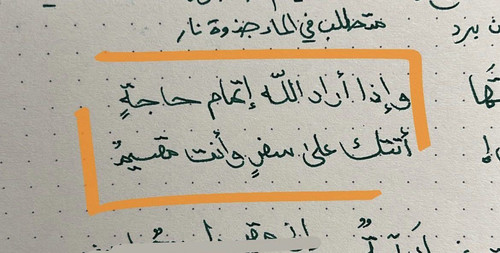 متطلب في الماء جذوة نار
ن برد
وإذا أراد الله إتمام حاجةٍ
تَها
أتتك على سفرٍ وأنت مقيمُ